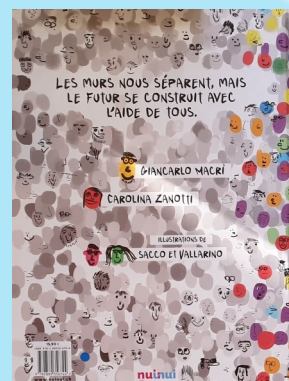 LES MURS NOUS SÉPARENT, MAIS
LE FUTUR SE CONSTRUIT AVEC
L'AIDE DE TOUS.
GIANCARLO MACRÌ
CAROLINA ZANOTTI
ILLUSTRATIONS DE
SACCO ET VALLARINO
nuinui